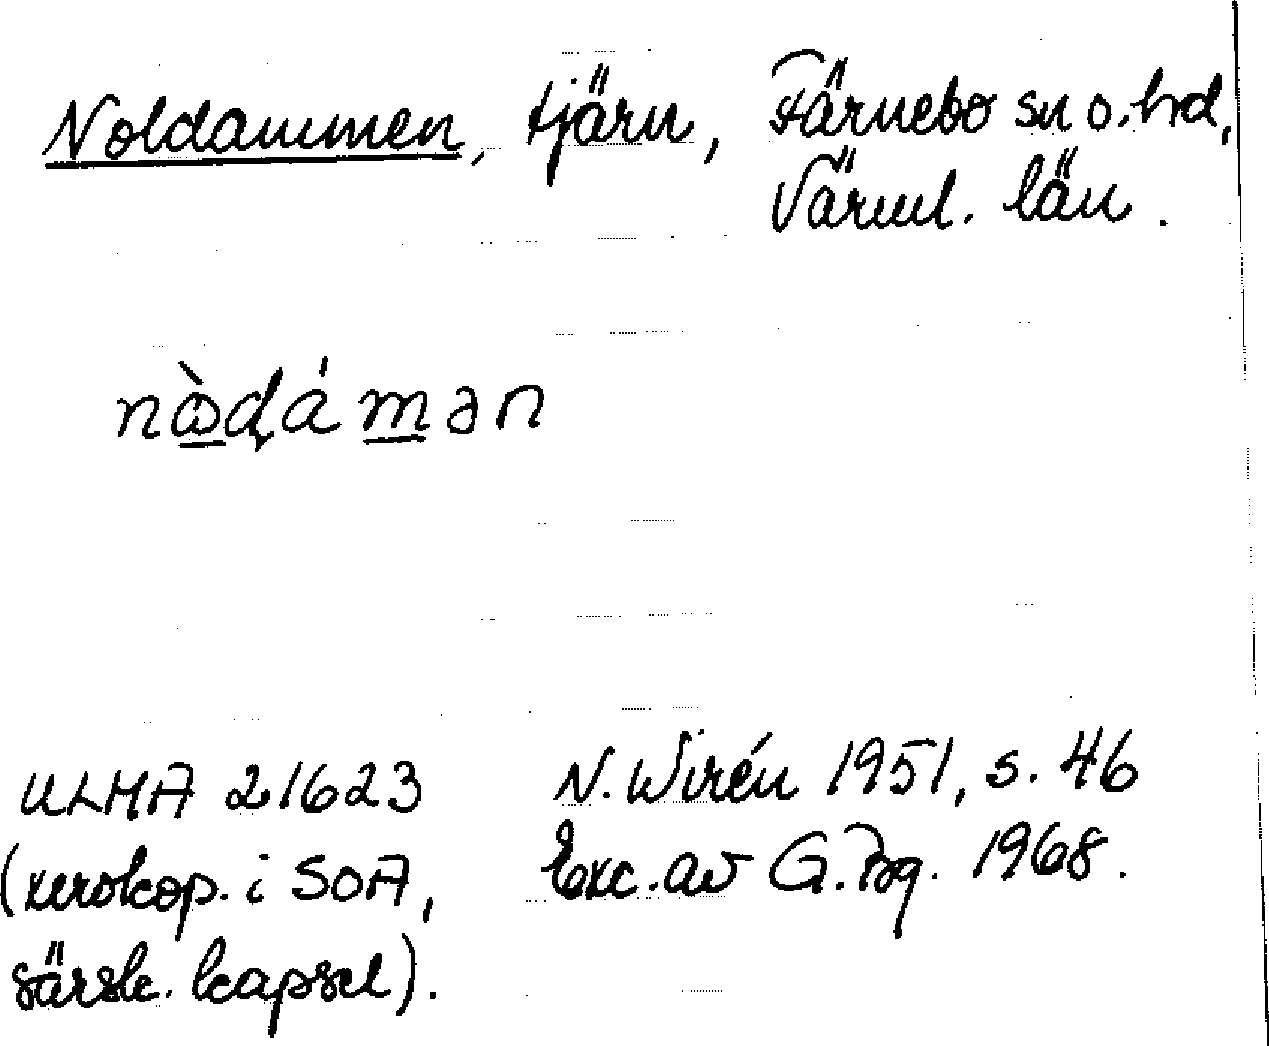 Noldammen, tjärn, Färnebo sn o. hd,
Värml. län.
nὼḍámən
ULMA 21623 N. Wirén 1951, s. 46
(xerokop. i SOA, Exc. av G. Bg. 1968.
särsk. kapsel).